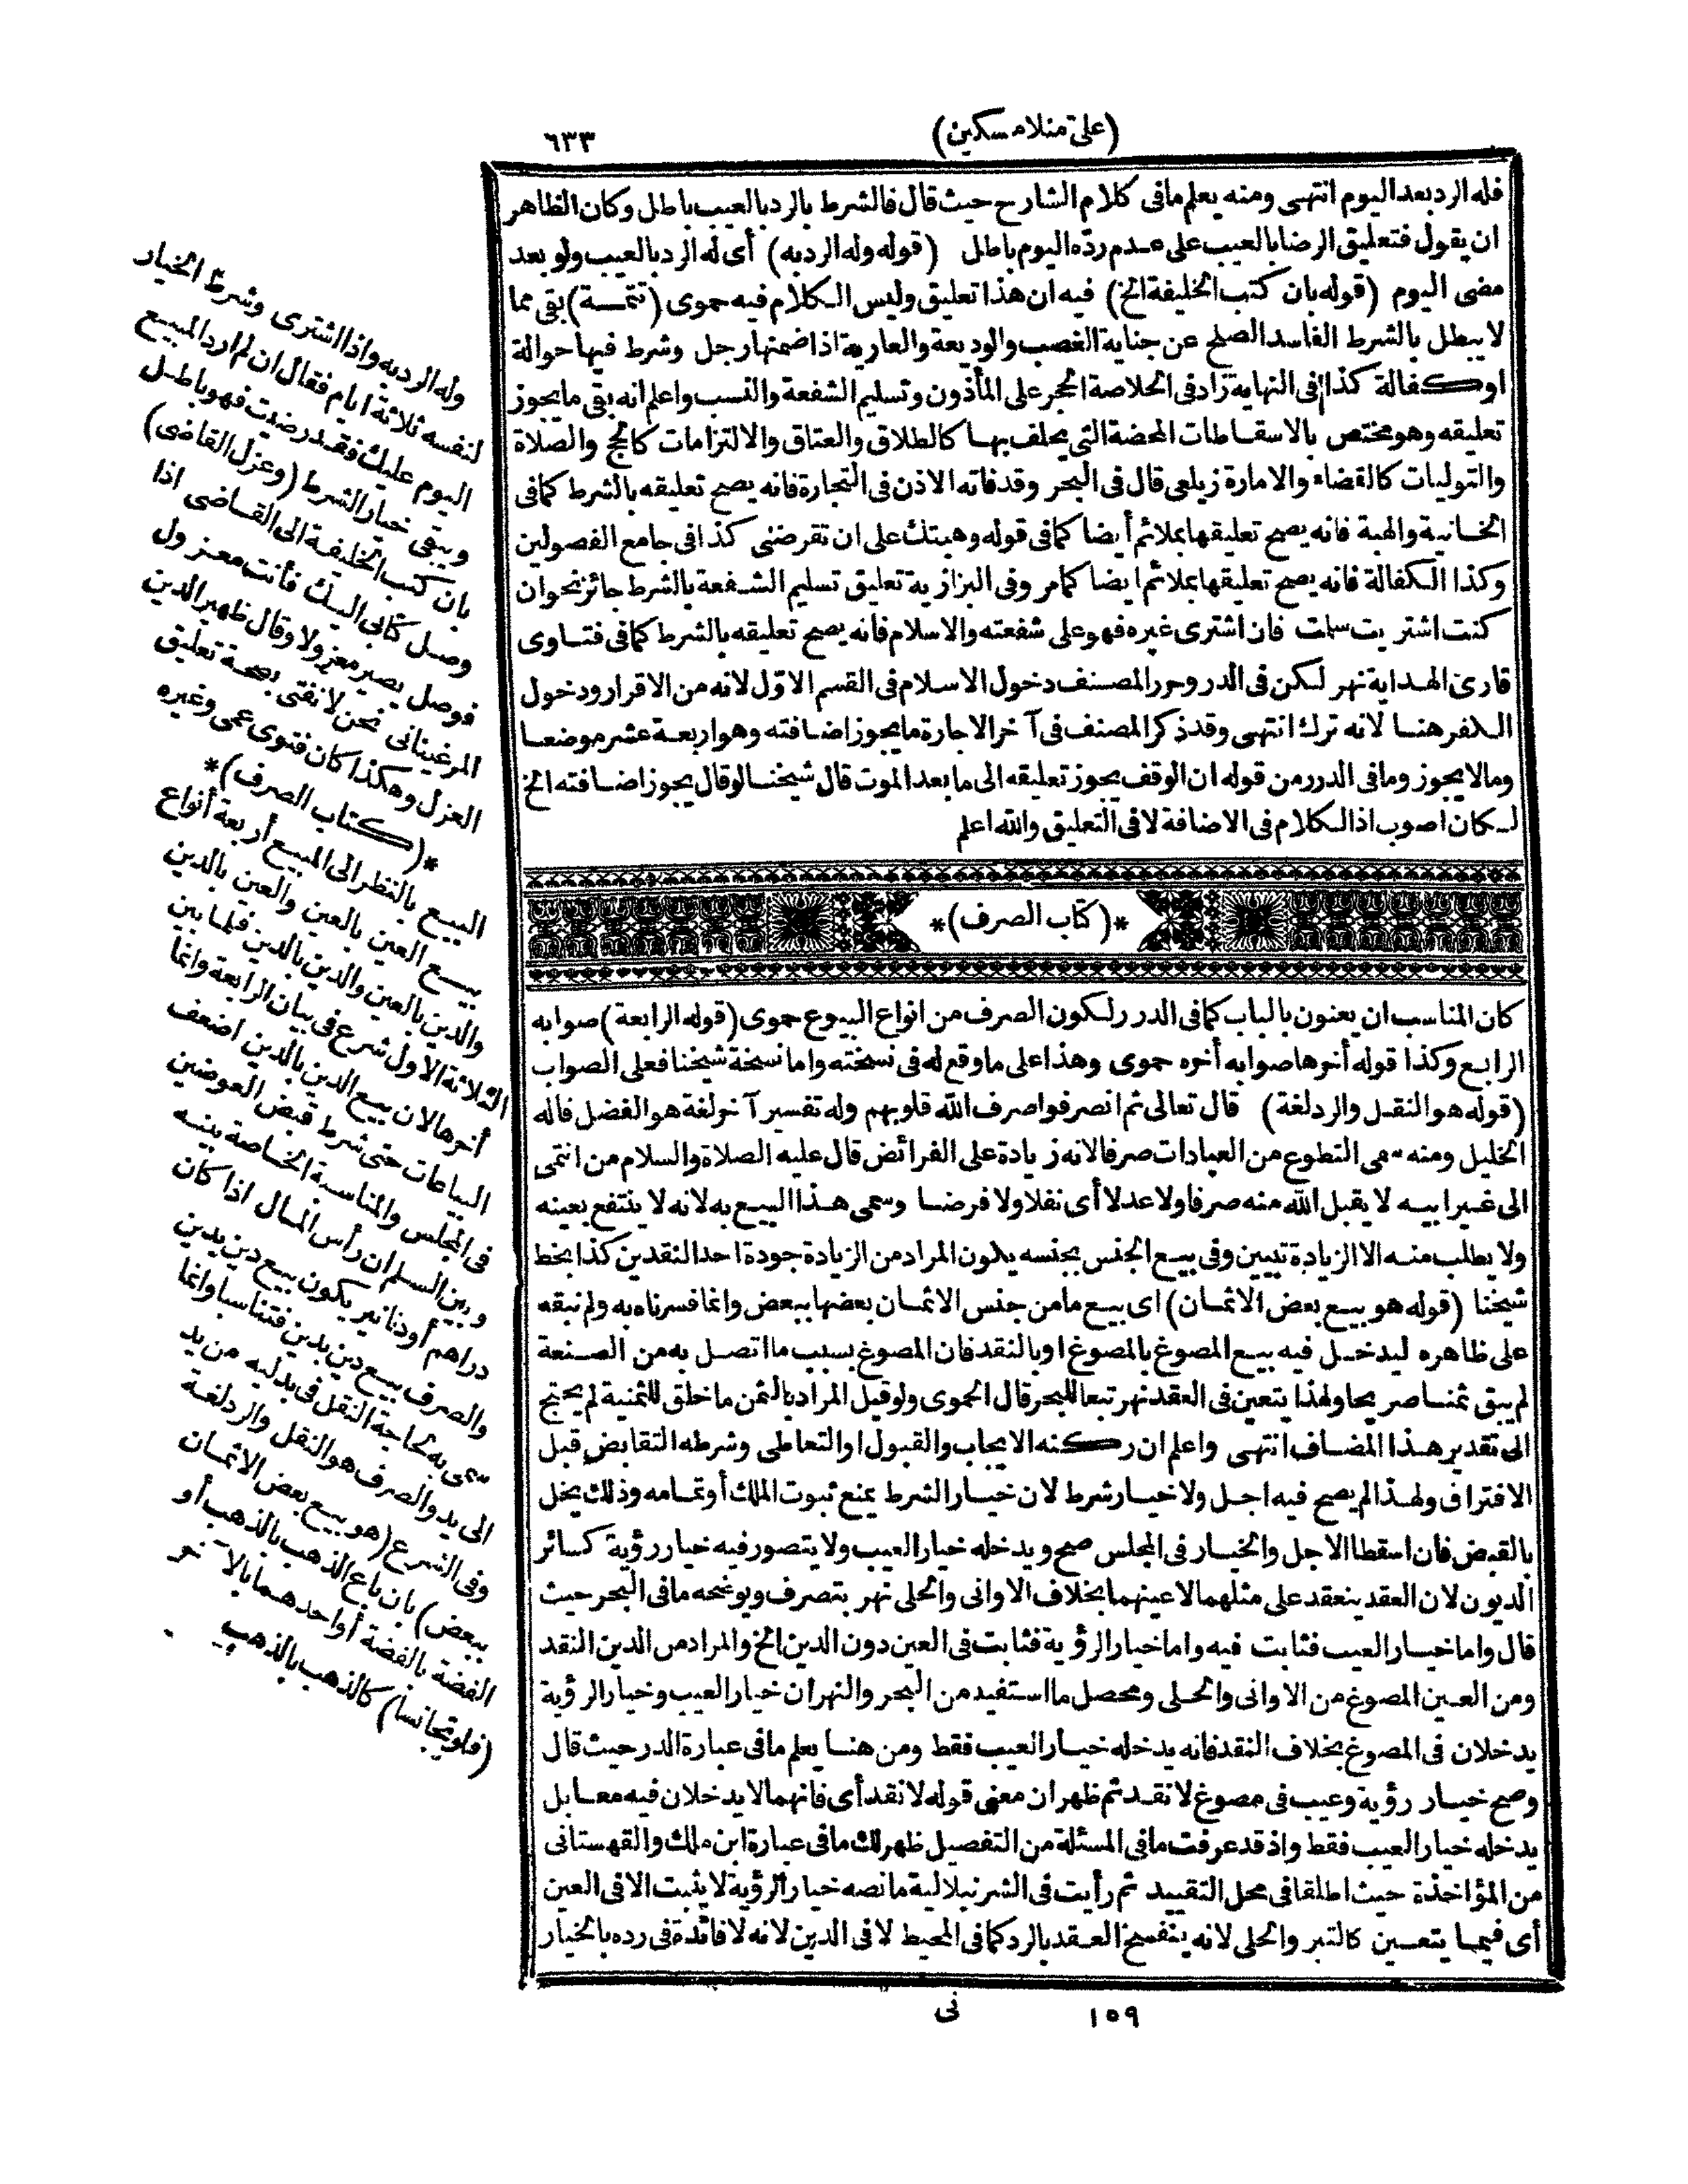 (على منلا مسكين)
٦٣٣
فله الرد بعد اليوم انتهى ومنه يعلم ما فى كلام الشارح حيث قال فالشرط بالرد بالعيب باطل وكان الظاهر
ان يقول فتعليق الرضا بالعيب على عدم ردّه اليوم باطل (قوله وله الرد به) أى له الرد بالعيب ولو بعد
مضى اليوم (قوله بان كتب الخليفة الخ) فيه ان هذا تعليق وليس الكلام فيه حموى (تتمسة) بقى مما
لا يبطل بالشرط الفاسد الصلح عن جناية الغصب والوديعة والعارية اذا ضمنها رجل وشرط فيها حوالة
او كفالة كذا فى النهاية زاد فى الخلاصة الحجر على المأذون وتسليم الشفعة والنسب واعلم انه بقى ما يجوز
تعليقه وهو مختص بالاسقاطات المحضة التى يحلف بها كالطلاق والعتاق والالتزامات كالحج والصلاة
والتوليات كالقضاء والامارة زيلعى قال فى البحر وقد فاته الاذن فى التجارة فانه يصح تعليقه بالشرط كما فى
الخانية والهبة فانه يصح تعليقها بملائم أيضا كما فى قوله وهبتك على ان تقرضنى كذا فى جامع الفصولين
وكذا الكفالة فانه يصح تعليقها بملائم ايضا كما مر وفى البزازية تعليق تسليم الشفعة بالشرط جائز نحو ان
كنت اشتريت سلمت فان اشترى غيره فهو على شفعته والاسلام فانه يصح تعليقه بالشرط كما فى فتاوى
قارئ الهداية نهر لكن فى الدر وحرر المصنف دخول الاسلام فى القسم الاوّل لانه من الاقرار ودخول
الكفر هنا لانه ترك انتهى وقد ذكر المصنف فى آخر الاجارة ما يجوز اضافته وهو اربعة عشر موضعا
وما لا يجوز وما فى الدرر من قوله ان الوقف يجوز تعليقه الى ما بعد الموت قال شيخنا لو قال يجوز اضافته الخ
لكان اصوب اذ الكلام فى الاضافة لا فى التعليق والله اعلم
*(كتاب الصرف)*
كان المناسب ان يعنون بالباب كما فى الدرر لكون الصرف من انواع البيوع حموى (قوله الرابعة) صوابه
الرابع وكذا قوله أخرها صوابه أخره حموى وهذا على ما وقع له فى نسخته واما نسخة شيخنا فعلى الصواب
(قوله هو النقل والرد لغة) قال تعالى ثم انصرفوا صرف الله قلوبهم وله تفسير آخر لغة هو الفضل قاله
الخليل ومنه سمى التطوع من العبادات صرفا لانه زيادة على الفرائض قال عليه الصلاة والسلام من انتمى
الى غير ابيه لا يقبل الله منه صرفا ولا عدلا أى نفلا ولا فرضا وسمى هذا البيع به لانه لا ينتفع بعينه
ولا يطلب منه الا الزيادة تبيين وفى بيع الجنس بجنسه يكون المراد من الزيادة جودة احد النقدين كذا بخط
شيخنا (قوله هو بيع بعض الاثمان) اى بيع ما من جنس الاثمان بعضها ببعض وانما فسرناه به ولم نبقه
على ظاهره ليدخل فيه بيع المصوغ بالمصوغ او بالنقد فان المصوغ بسبب ما اتصل به من الصنعة
لم يبق ثمنا صريحا ولهذا يتعين فى العقد نهر تبعا للبحر قال الحموى ولو قيل المراد بالثمن ما خلق للثمنية لم يحتج
الى تقدير هذا المضاف انتهى واعلم ان ركنه الايجاب والقبول او التعاطى وشرطه التقابض قبل
الافتراق ولهذا لم يصح فيه اجل ولا خيار شرط لان خيار الشرط يمنع ثبوت الملك أو تمامه وذلك يخل
بالقبض فان اسقطا الاجل والخيار فى المجلس صح ويدخله خيار العيب ولا يتصور فيه خيار رؤية كسائر
الديون لان العقد ينعقد على مثلهما لا عينهما بخلاف الاوانى والحلى نهر بتصرف ويوضحه ما فى البحر حيث
قال واما خيار العيب فثابت فيه واما خيار الرؤية فثابت فى العين دون الدين الخ والمراد من الدين النقد
ومن العين المصوغ من الاوانى والحلى ومحصل ما استفيد من البحر والنهر ان خيار العيب وخيار الرؤية
يدخلان فى المصوغ بخلاف النقد فانه يدخله خيار العيب فقط ومن هنا يعلم ما فى عبارة الدر حيث قال
وصح خيار رؤية وعيب فى مصوغ لا نقد ثم ظهر ان معنى قوله لا نقد أى فانهما لا يدخلان فيه معا بل
يدخله خيار العيب فقط واذ قد عرفت ما فى المسئلة من التفصيل ظهر لك ما فى عبارة ابن ملك والقهستانى
من المؤاخذة حيث اطلقا فى محل التقييد ثم رأيت فى الشرنبلالية ما نصه خيار الرؤية لا يثبت الا فى العين
أى فيما يتعين كالتبر والحلى لانه ينفسخ العقد بالرد كما فى المحيط لا فى الدين لانه لا فائدة فى رده بالخيار
وله الرد به واذا اشترى وشرط الخيار
لنفسه ثلاثة ايام فقال ان لم ارد المبيع
اليوم عليك فقد رضيت فهو باطل
ويبقى خيار الشرط (وعزل القاضى)
بان كتب الخليفة الى القاضى اذا
وصل كتابى اليك فأنت معزول
فوصل يصير معزولا وقال ظهير الدين
المرغينانى نحن لا نفتى بصحة تعليق
العزل وهكذا كان فتوى عمى وغيره
*(كتاب الصرف)*
البيع بالنظر الى المبيع أربعة أنواع
بيع العين بالعين والعين بالدين
والدين بالعين والدين بالدين فلما بين
الثلاثة الاول شرع فى بيان الرابعة وانما
أخرها لان بيع الدين بالدين اضعف
البياعات حتى شرط قبض العوضين
فى المجلس والمناسبة الخاصة بينه
وبين السلم ان رأس المال اذا كان
دراهم أو دنانير يكون بيع دين بدين
والصرف بيع دين بدين فتناسبا وانما
سمى به لحاجة النقل فى بدليه من يد
الى يد والصرف هو النقل والرد لغة
وفى الشرع (هو بيع بعض الاثمان
ببعض) بان باع الذهب بالذهب أو
الفضة بالفضة أو احدهما بالآخر
(فلو تجانسا) كالذهب بالذهب
١٥٩
نى